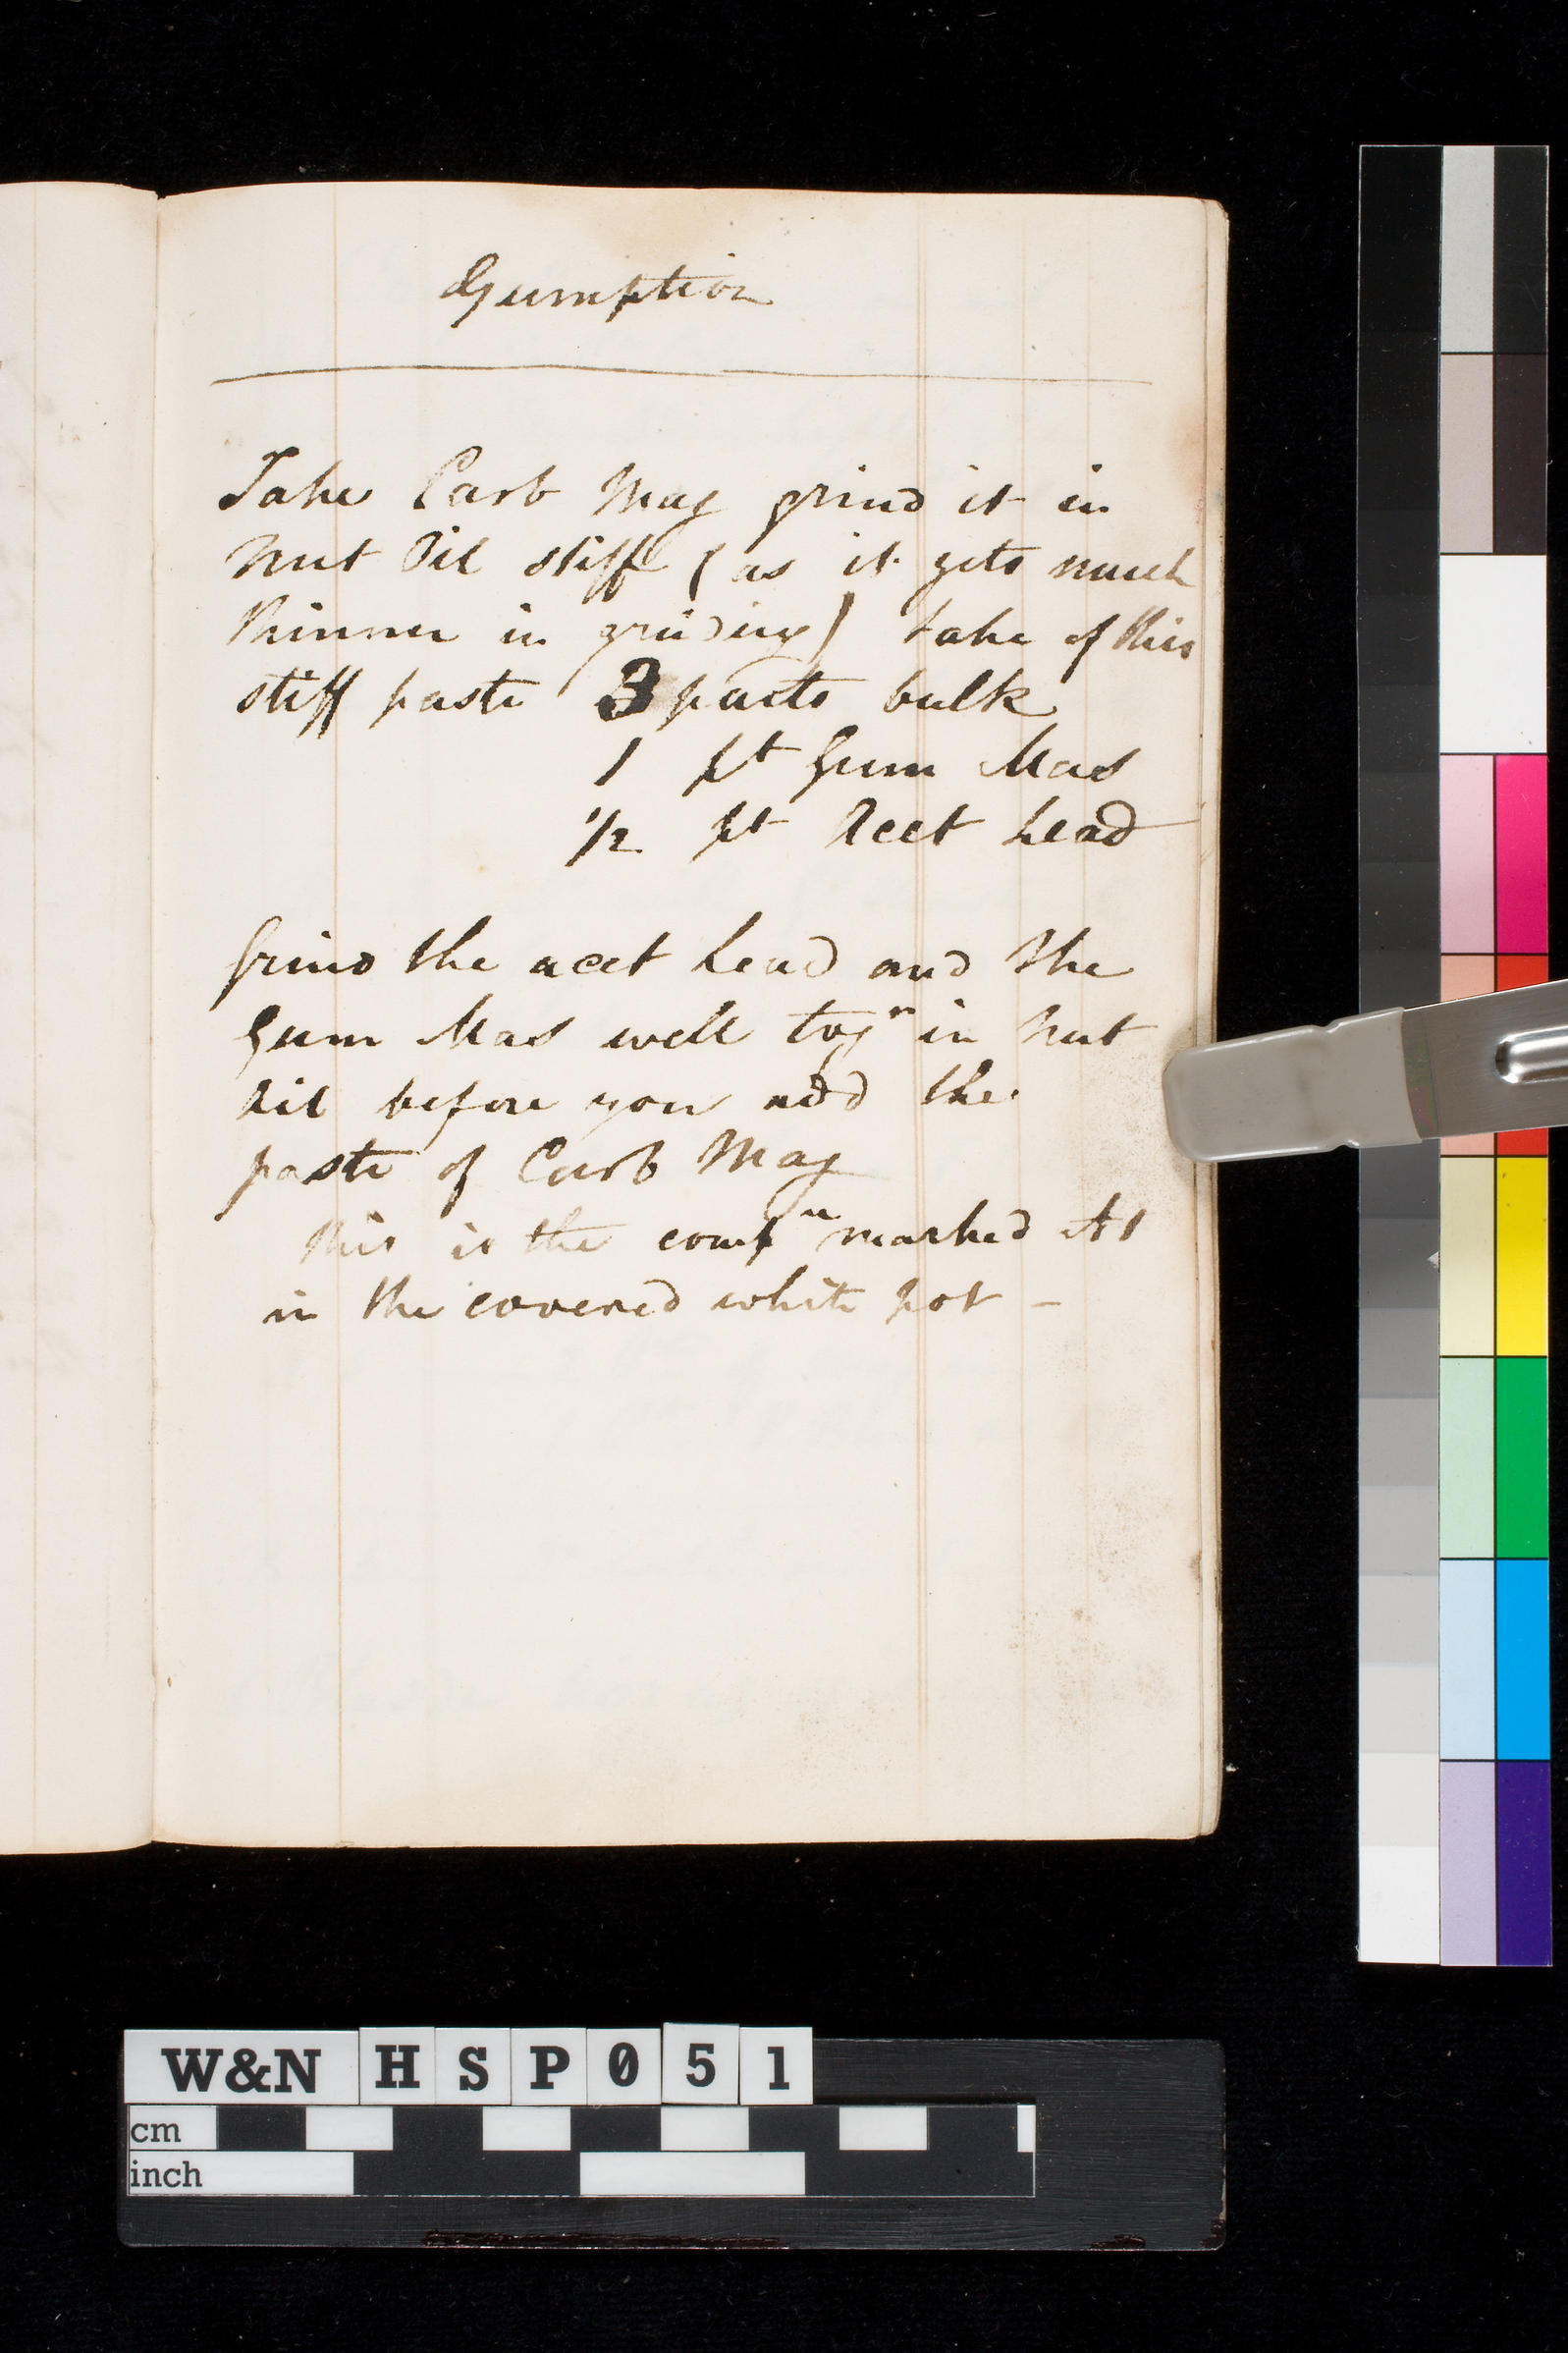 Gumption
Take Carb Mag grind it in
Nut Oil stiff (as it gets much
thinner in grinding) take of this
stiff paste 3 parts bulk
1 pt Gum Mas
1/2 pt Acet Lead
Grind the acet Lead and the
Gum Mas well togr in Nut
Oil before you add the
paste of Carb Mag
this is the compn marked A1
in the covered white pot -
W&N HSP051
cm
inch